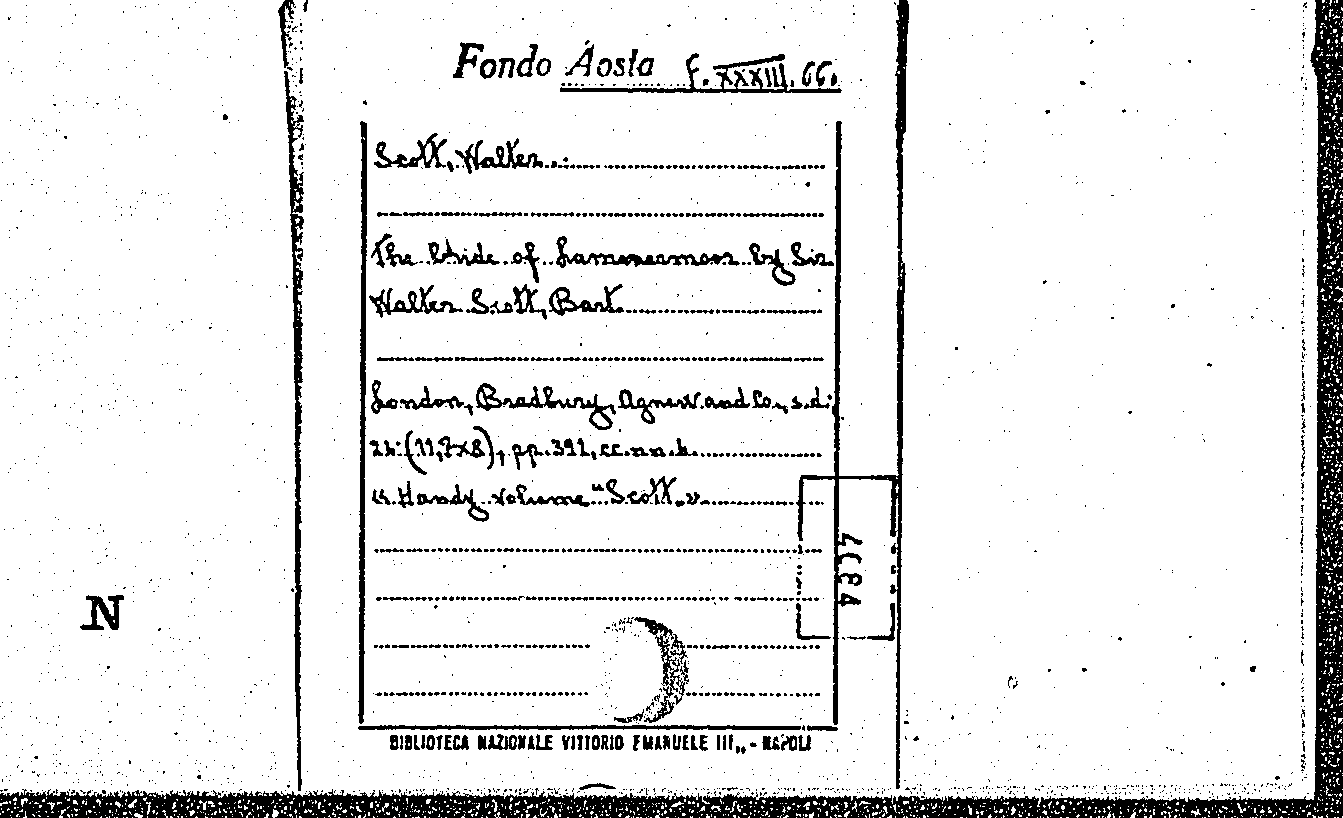 Fondo Aosta F. XXXIII. 66.
Scott, Walter.
The bride of Lammermoor by Sir
Walter Scott, Bart.
London, Bradbury, Agnew and Co., s.d.;
24:(11,7x8), pp. 392, cc.nn.6.
"Handy volume "Scott."
4084
N
BIBLIOTECA NAZIONALE VITTORIO EMANUELE III„ - NAPOLI